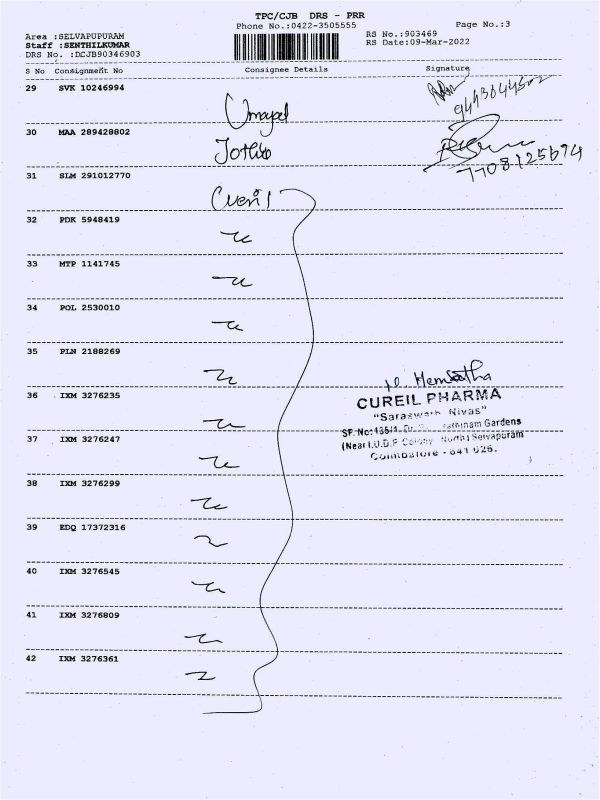 TPC/CJB DRS - PRR
Phone No.:0422-3505555
Page No.:3
Area :SELVAPUPURAM
Staff :SENTHILKUMAR
DRS No. :DCJB90346903
RS No.:903469
RS Date:09-Mar-2022
S No Consignment No Consignee Details Signature
29 SVK 10246994
Umayal
30 MAA 289428802
Jothi
7708125694
31 SLM 291012770
Cureil
32 PDK 5948419
33 MTP 1141745
34 POL 2530010
35 PLN 2188269
Hemlatha
36 IXM 3276235
CUREIL PHARMA
"Saraswathi Nivas"
SF.No:135/1, Dr. Rathinam Gardens
37 IXM 3276247
(Near I.U.D.P Colony North) Selvapuram
Coimbatore - 641 026.
38 IXM 3276299
39 EDQ 17372316
40 IXM 3276545
41 IXM 3276809
42 IXM 3276361